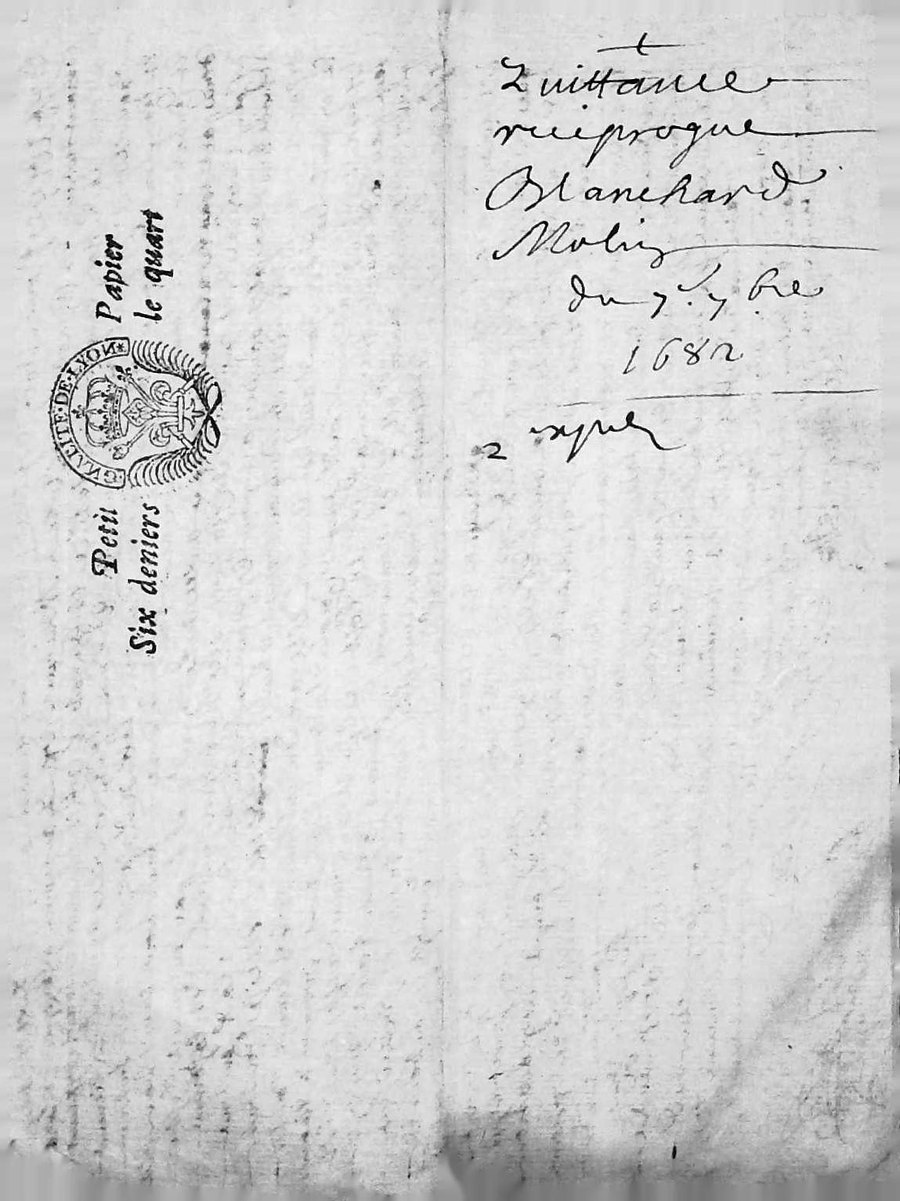 Quittance
reciproque
Blanchard
Molin
du 7e. 7bre
1682
2
Petit Papier
Six deniers le quart
G͏NALITE·DE·LYON